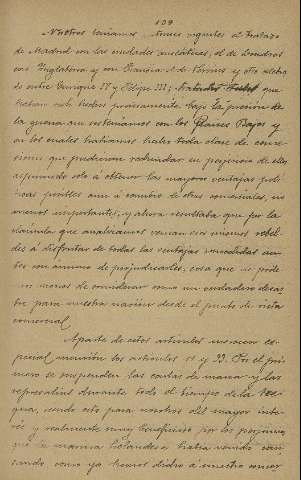 109
Nosotros teníamos vigentes el tratado
de Madrid con las ciudades anseáticas, el de Londres
con Inglaterra y con Francia el de Vervins y otro
entre Enrique IV y Felipe III; tratados todos que
habían sido hechos precisamente bajo la presión de
la guerra que sosteníamos con los Países Bajos y
en los cuales habíamos hecho toda clase de conce-
siones que pudieran redundar en perjuicio de ellos,
aspirando solo á obtener las mayores ventajas polí-
ticas posibles aun á cambio de otras comerciales, no
menos importantes; y ahora resultaba que por la
cláusula que analizamos venían esos mismos rebel-
des á disfrutar de todas las ventajas concedidas an-
tes con ánimo de perjudicarles, cosa que no pode-
mos menos de considerar como un verdadero desas-
tre para nuestra nación desde el punto de vista
comercial.
Aparte de estos artículos merecen es-
pecial mención los artículos 11 y 22. En el pri-
mero se suspenden las cartas de marca y las
represalias durante todo el tiempo de la tre-
gua, siendo esto para nosotros del mayor inte-
rés y realmente muy beneficioso por los perjuicios
que la marina holandesa había venido cau-
sando como ya hemos dicho á nuestro comer